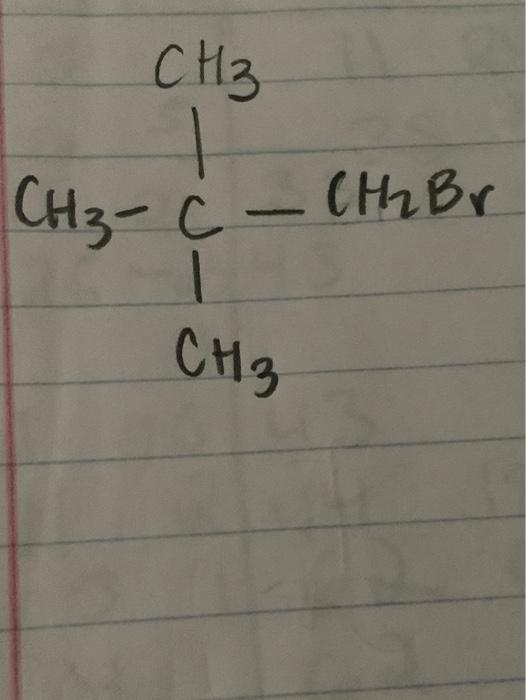 CH3
CH3 - C - CH2Br
CH3